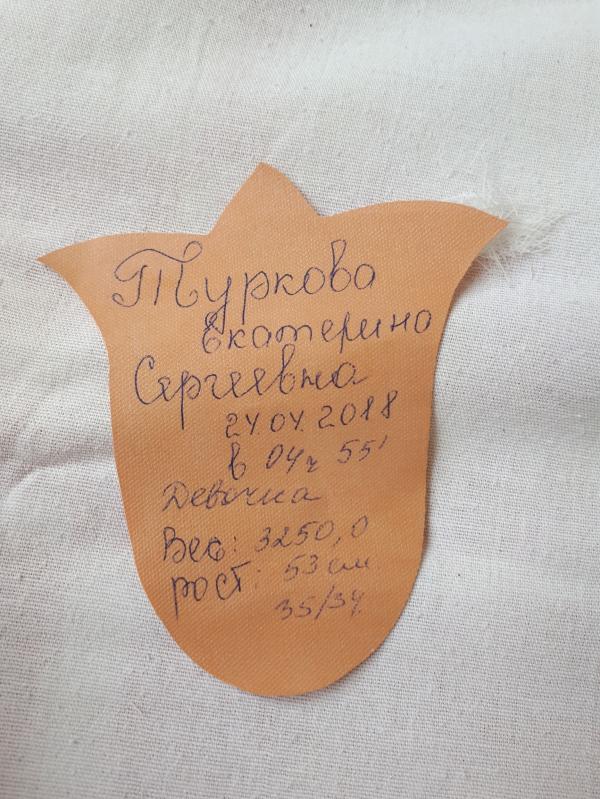 Туркова
Екатерина
Сергеевна
24.04.2018
в 04ч 55'
Девочка
Вес: 3250,0
рост: 53 см
35/34